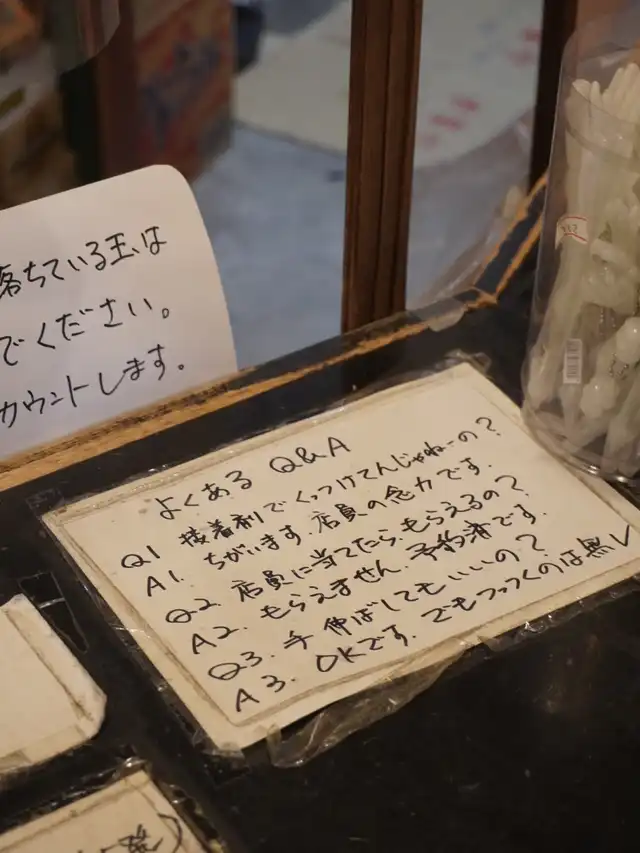 落ちている玉は
でください。
カウントします。
よくある Q&A
Q1 接着剤でくっつけてんじゃねーの?
A1. ちがいます。店員の念力です.
Q2. 店員に当てたら、もらえるの?
A2. もらえません. 予約済です.
Q3. 手伸ばしてもいいの?
A3. OKです. でもつっつくのは無し